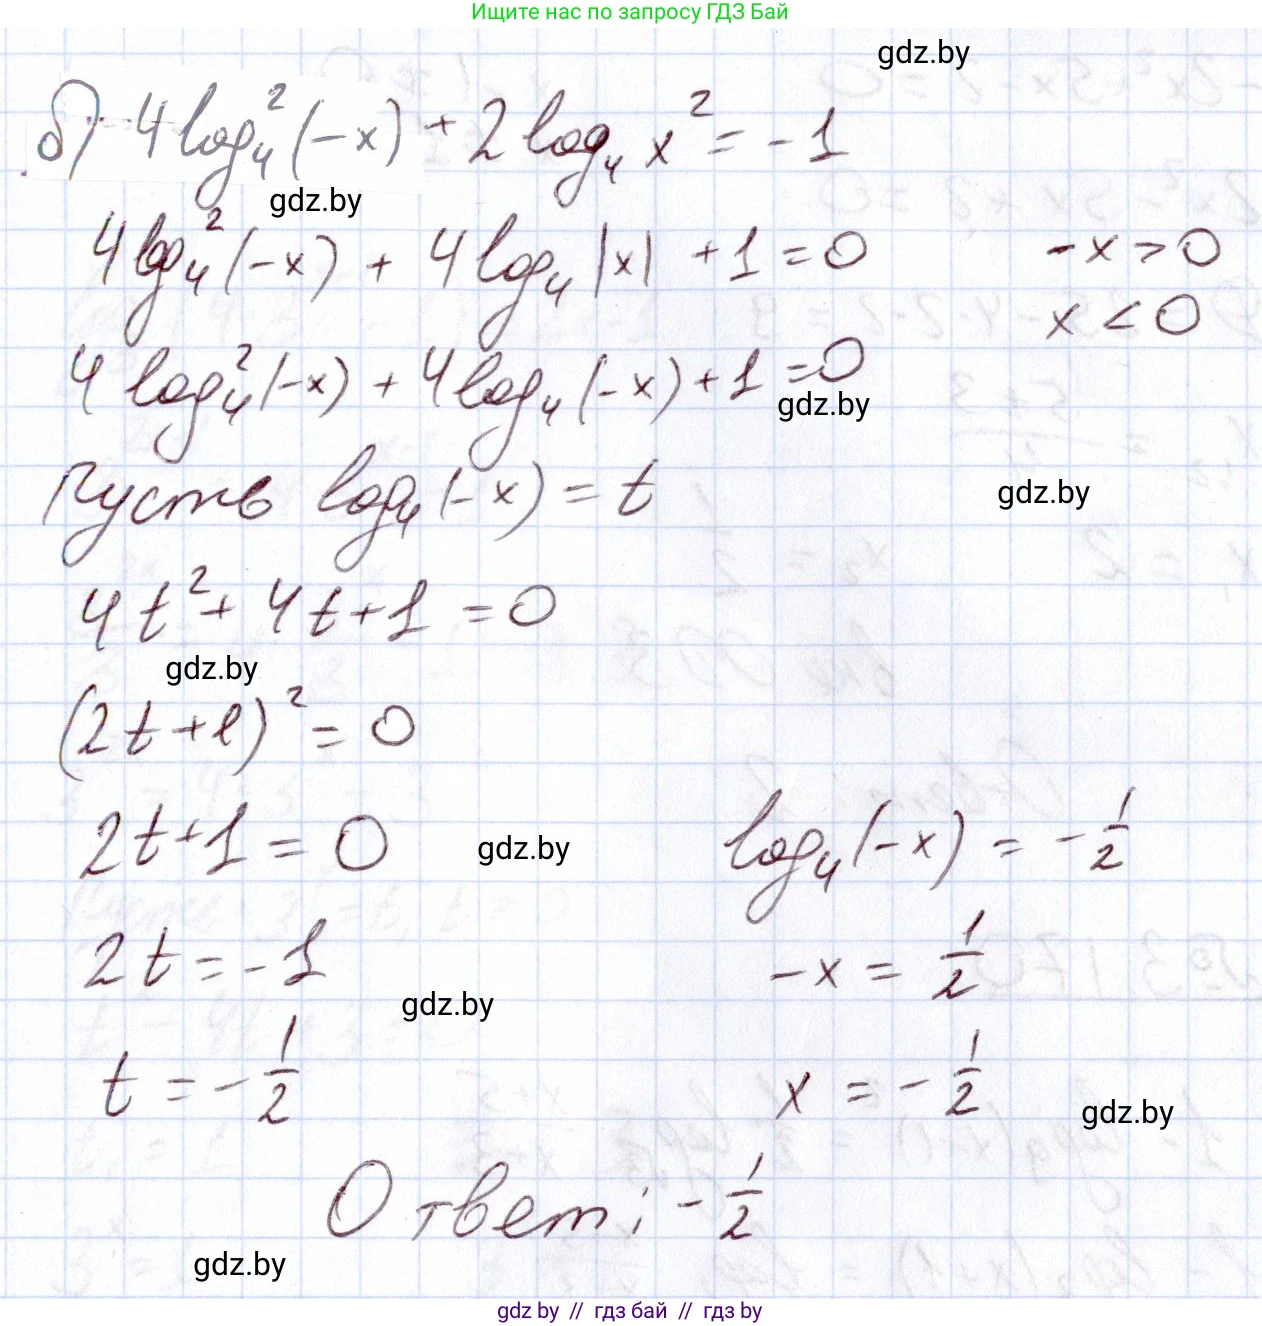 Ищите нас по запросу ГДЗ Бай
gdz.by
б) 4 log₄² (-x) + 2 log₄ x² = -1
gdz.by
4 log₄² (-x) + 4 log₄ |x| + 1 = 0
-x > 0
x < 0
4 log₄² (-x) + 4 log₄ (-x) + 1 = 0
gdz.by
Пусть log₄ (-x) = t
gdz.by
4t² + 4t + 1 = 0
gdz.by
(2t + 1)² = 0
2t + 1 = 0
gdz.by
log₄ (-x) = -1/2
2t = -1
-x = 1/2
gdz.by
t = -1/2
x = -1/2
gdz.by
Ответ: -1/2
gdz.by
gdz by // гдз бай // гдз by